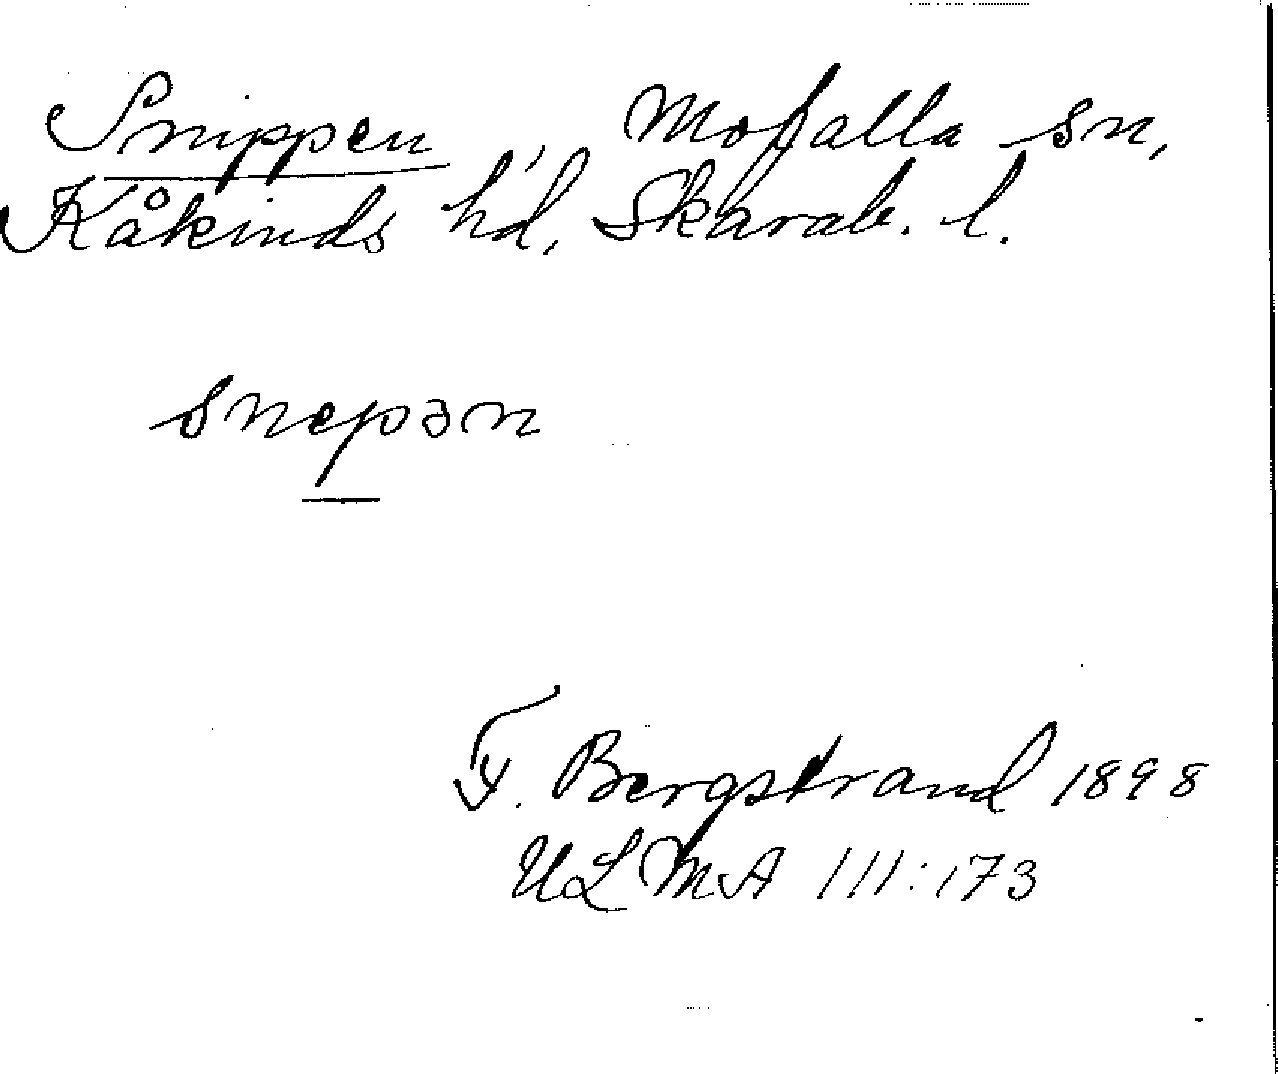 Snippen, Mofalla sn,
Kåkinds hd, Skarab. l.
snepən
F. Bergstrand 1898
ULMA 111:173